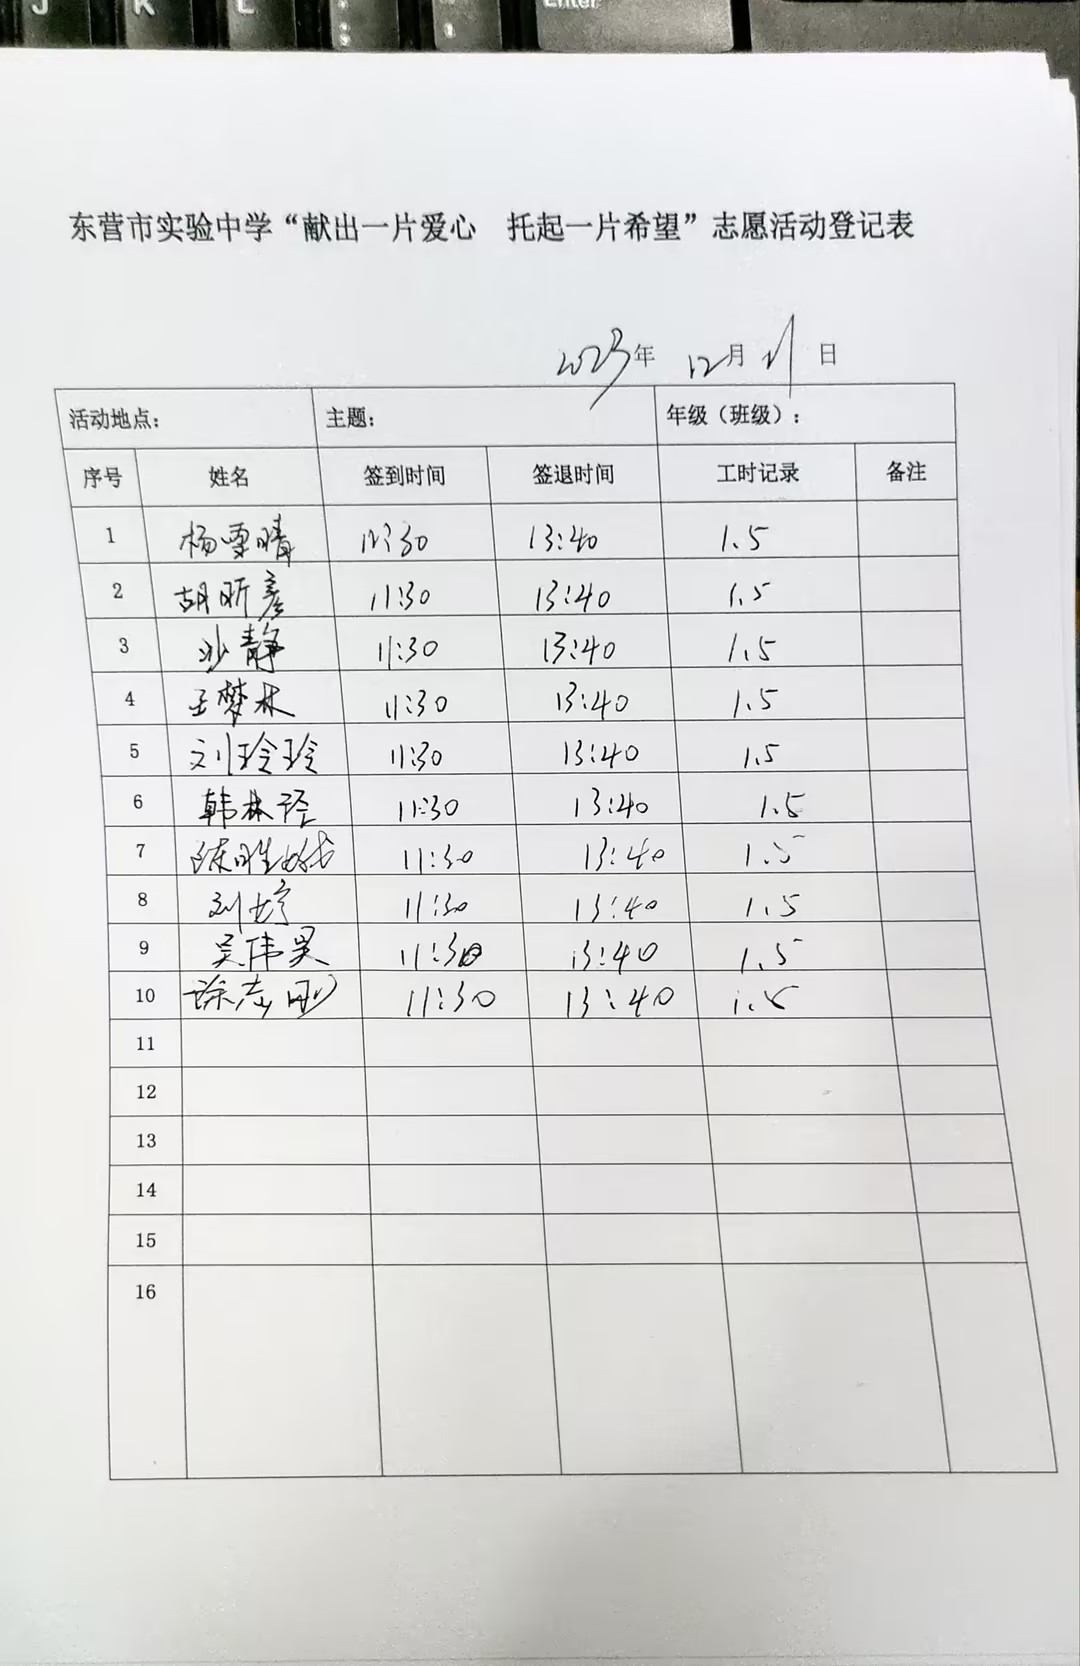 J K L Enter
东营市实验中学“献出一片爱心 托起一片希望”志愿活动登记表
2023年 12月 21日
活动地点： 主题： 年级（班级）：
序号 姓名 签到时间 签退时间 工时记录 备注
1 杨雯晴 11:30 13:40 1.5
2 胡昕彦 11:30 13:40 1.5
3 沙静 11:30 13:40 1.5
4 王梦林 11:30 13:40 1.5
5 刘玲玲 11:30 13:40 1.5
6 韩林泾 11:30 13:40 1.5
7 11:30 13:40 1.5
8 刘婷 11:30 13:40 1.5
9 吴伟昊 11:30 13:40 1.5
10 徐志刚 11:30 13:40 1.5
11
12
13
14
15
16